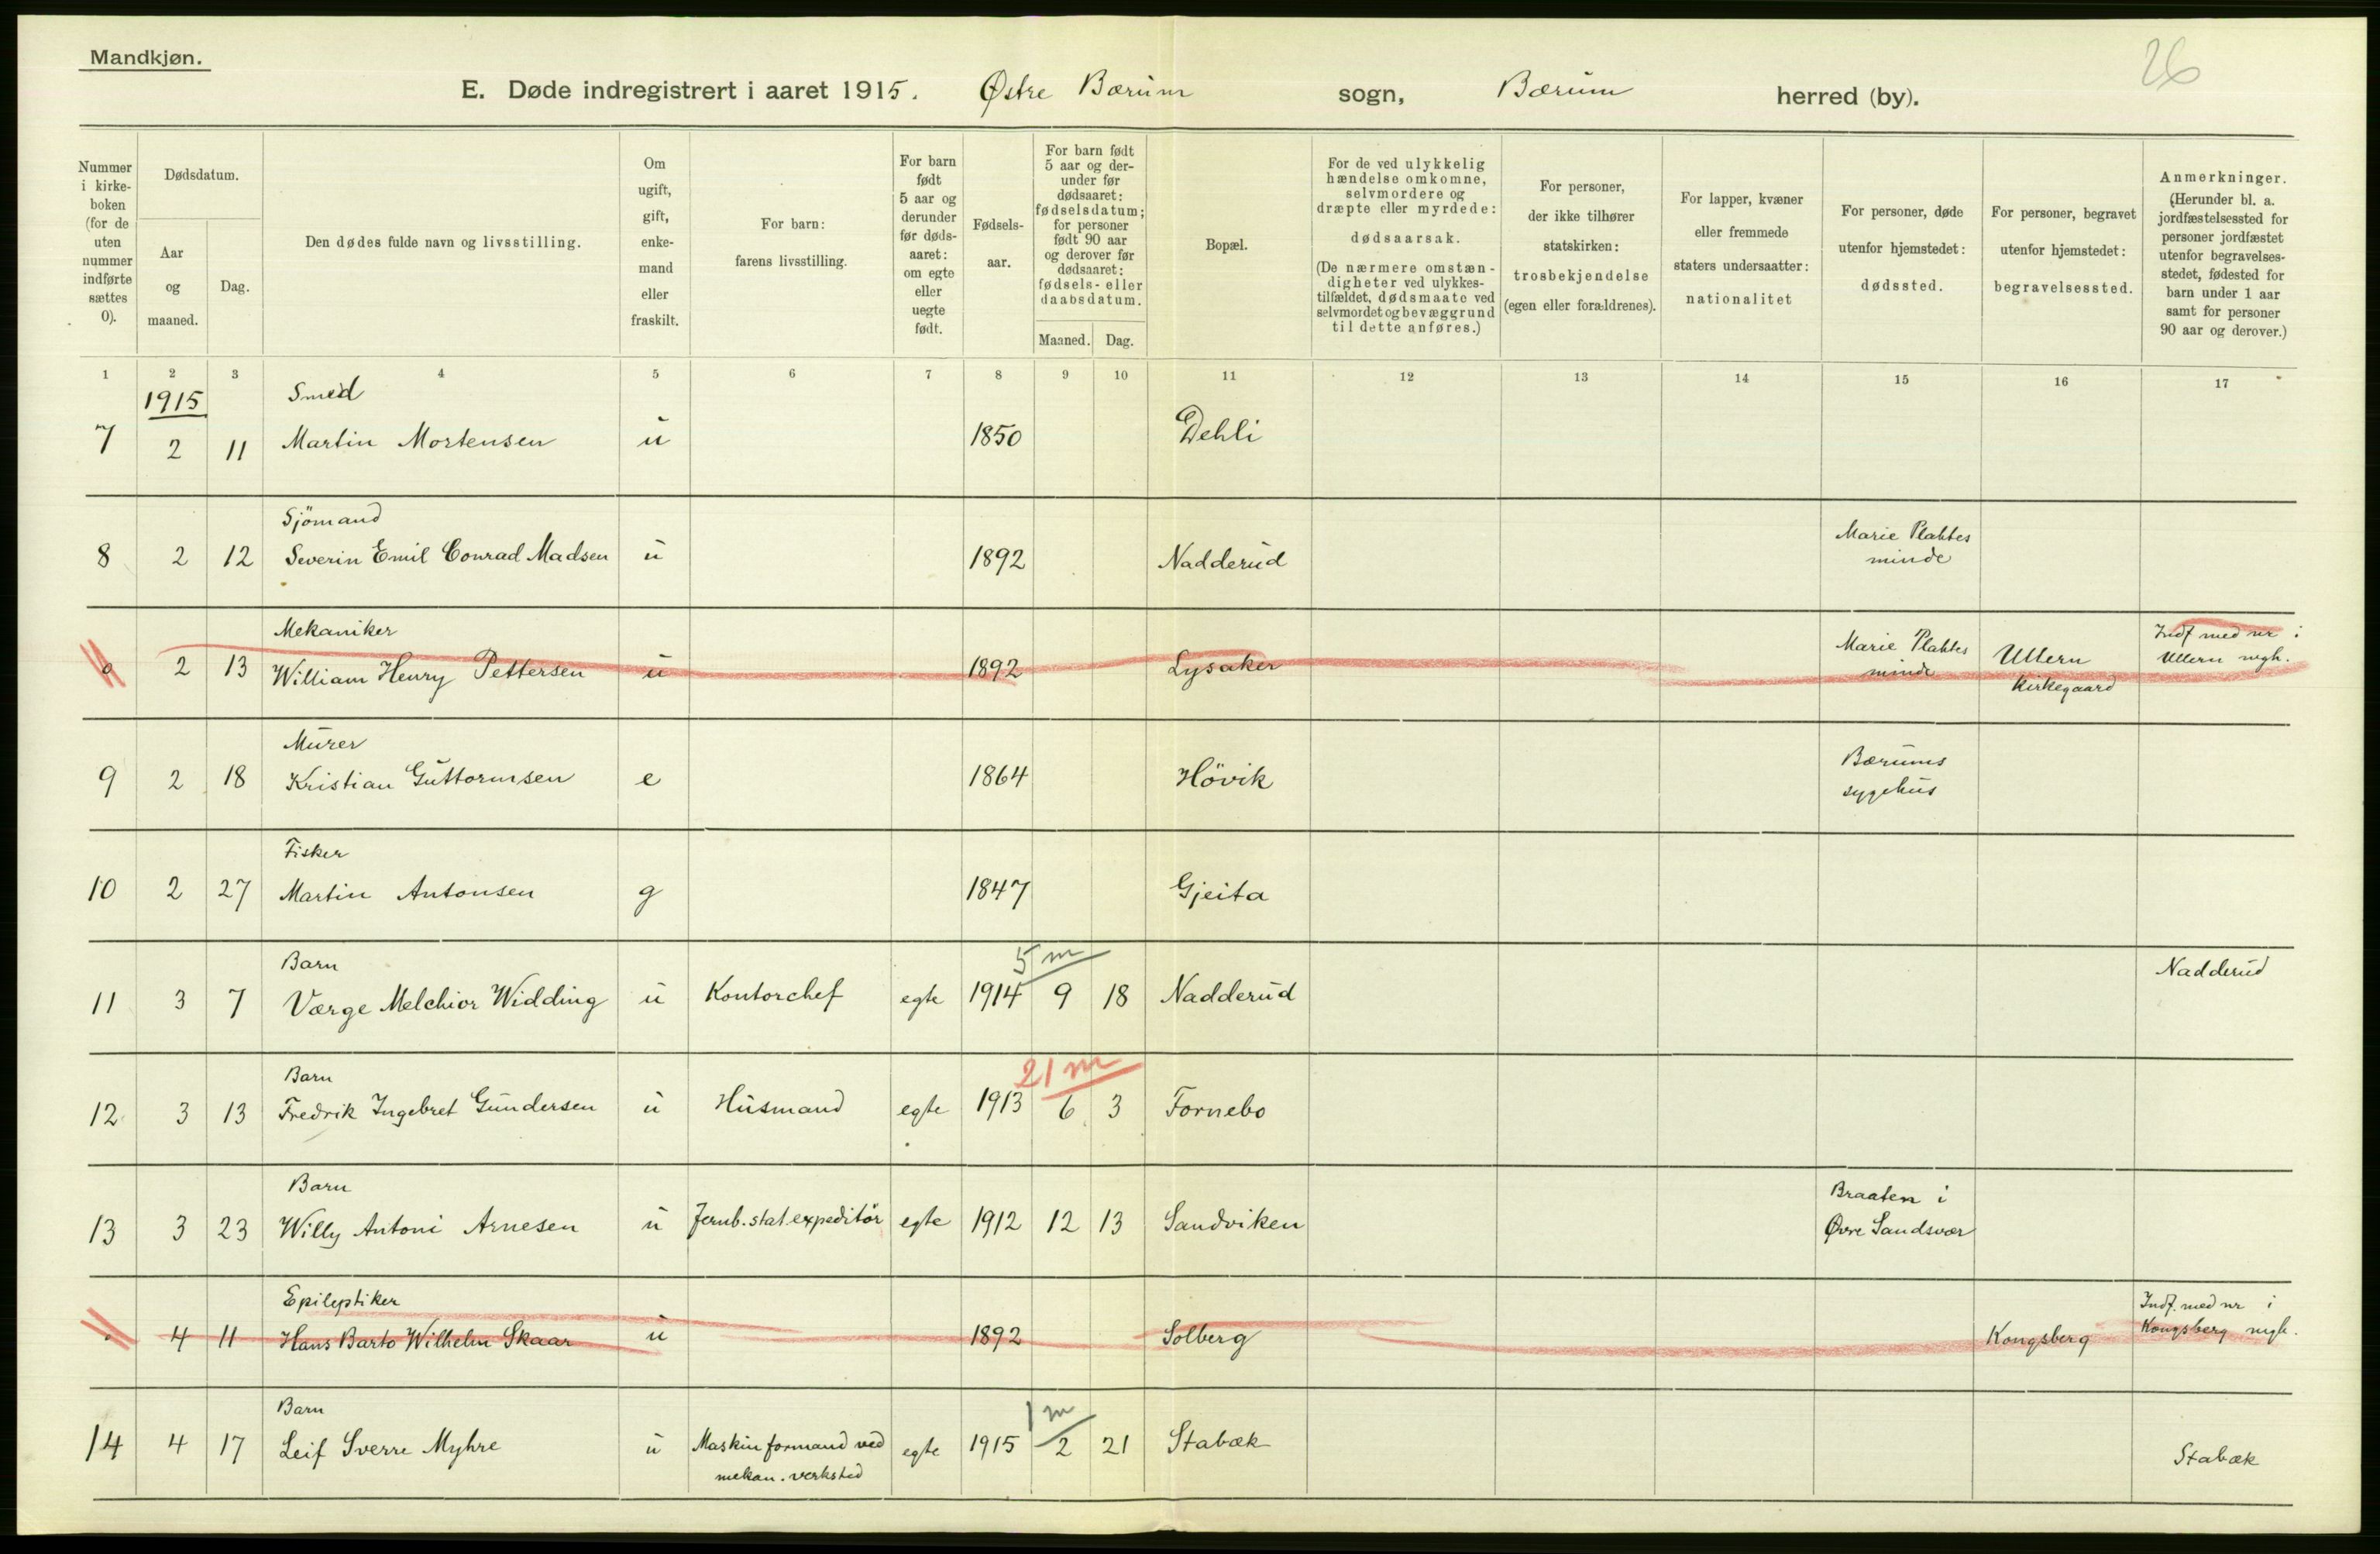 Mandkjøn.
26
E. Døde indregistrert i aaret 1915. Østre Bærum sogn, Bærum herred (by).
Nummer
i kirke-
boken
(for de
uten
nummer
indførte
sættes
0).
Dødsdatum.
Aar
og
maaned.
Dag.
Den dødes fulde navn og livsstilling.
Om
ugift,
gift,
enke-
mand
eller
fraskilt.
For barn:
farens livsstilling.
For barn
født
5 aar og
derunder
før døds-
aaret:
om egte
eller
uegte
født.
Fødsels-
aar.
For barn født
5 aar og der-
under før
dødsaaret:
fødselsdatum;
for personer
født 90 aar
og derover før
dødsaaret:
fødsels- eller
daabsdatum.
Maaned. Dag.
Bopæl.
For de ved ulykkelig
hændelse omkomne,
selvmordere og
dræpte eller myrdede:
dødsaarsak.
(De nærmere omstæn-
digheter ved ulykkes-
tilfældet, dødsmaate ved
selvmordet og bevæggrund
til dette anføres.)
For personer,
der ikke tilhører
statskirken:
trosbekjendelse
(egen eller forældrenes).
For lapper, kvæner
eller fremmede
staters undersaatter:
nationalitet
For personer, døde
utenfor hjemstedet:
dødssted.
For personer, begravet
utenfor hjemstedet:
begravelsessted.
Anmerkninger.
(Herunder bl. a.
jordfæstelsessted for
personer jordfæstet
utenfor begravelses-
stedet, fødested for
barn under 1 aar
samt for personer
90 aar og derover.)
1 2 3 4 5 6 7 8 9 10 11 12 13 14 15 16 17
1915 Smed
7 2 11 Martin Mortensen u 1850 Dehli
Sjömand Marie Plahtes
8 2 12 Severin Emil Conrad Madsen u 1892 Nadderud minde
Mekaniker Marie Plahtes Indf med nr i
0 2 13 William Henry Pettersen u 1892 Lysaker minde Ullern Ullern regh.
kirkegaard
Murer Bærums
9 2 18 Kristian Guttormsen e 1864 Hövik sygehus
Fisker
10 2 27 Martin Antonsen g 1847 Gjeita
Barn 5 m Nadderud
11 3 7 Værge Melchior Widding u Kontorchef egte 1914 9 18 Nadderud
Barn 21 m
12 3 13 Fredrik Ingebret Gundersen u Husmand egte 1913 6 3 Fornebo
Barn Braaten i
13 3 23 Willy Antoni Arnesen u Jernb. stat. expeditör egte 1912 12 13 Sandviken Øvre Sandsvær
Epileptiker Indf. med nr i
4 11 Hans Barto Wilhelm Skaar u 1892 Solberg Kongsberg Kongsberg regh.
Barn 1 m
14 4 17 Leif Sverre Myhre u Maskinformand ved egte 1915 2 21 Stabæk Stabæk
mekan. verksted